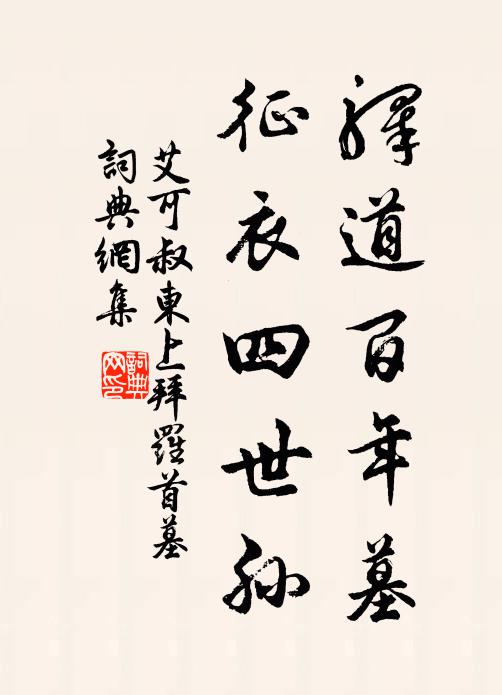 驛道百年墓
征衣四世孫
艾可叔東上拜羅首墓
詞典網集
詞典网印